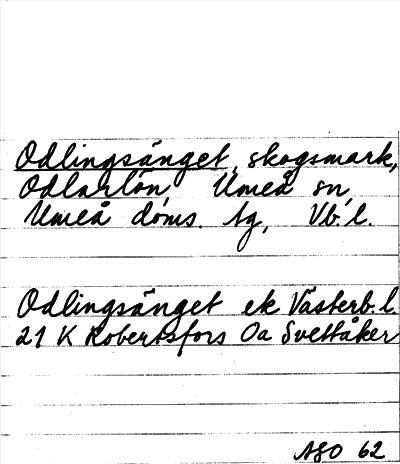 Odlingsänget, skogsmark,
Odlarlön, Umeå sn,
Umeå doms. tg, Vb. l.
Odlingsänget ek Västerb. l.
21 K Robertsfors Oa Svettåker
ASO 62